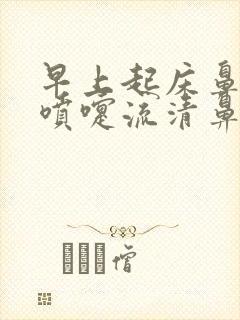 早上起床鼻
喷嚏流清鼻
僧